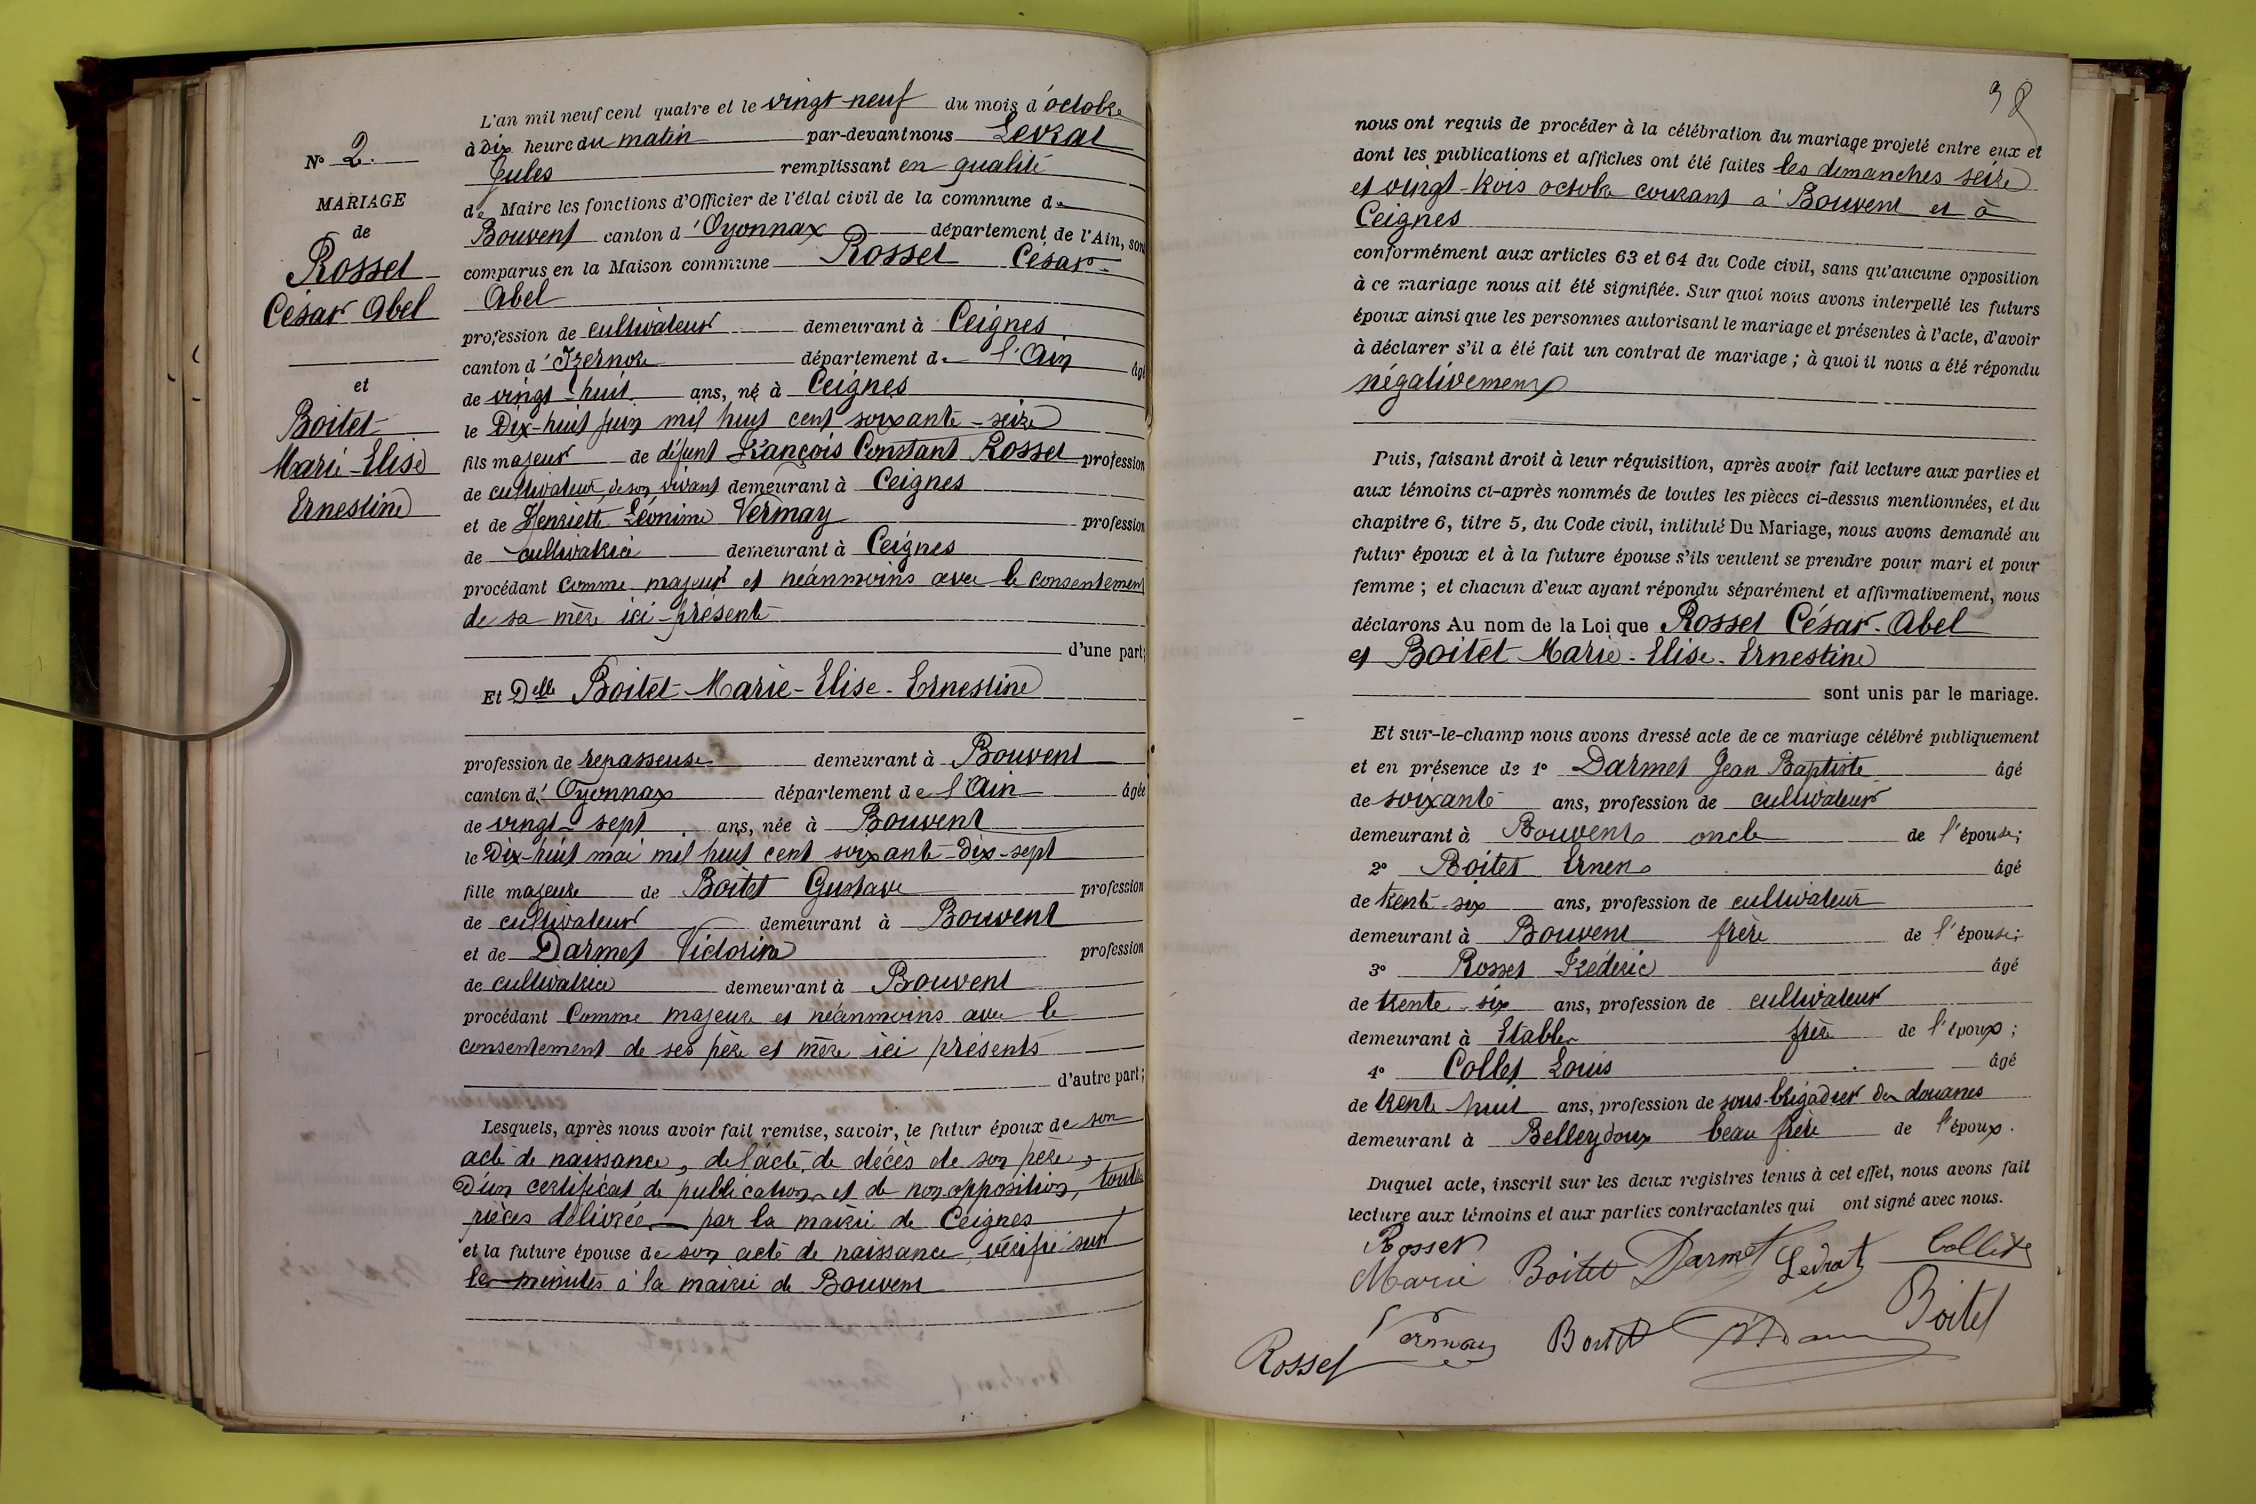 L'an mil neuf cent quatre et le vingt-neuf du mois d'octobre
à dix heure du matin par-devant nous Levrat
Jules remplissant en qualité
de Maire les fonctions d'Officier de l'état civil de la commune de
Bouvent canton d'Oyonnax département de l'Ain, sont
comparus en la Maison commune Rosset César
Abel
profession de cultivateur demeurant à Ceignes
canton d'Izernore département de l'Ain âgé
de vingt-huit ans, né à Ceignes
le Dix-huit juin mil huit cent soixante-seize
fils majeur de défunt François Constant Rosset profession
de cultivateur de son vivant demeurant à Ceignes
et de Henriette Léonime Vermay profession
de cultivatrice demeurant à Ceignes
procédant comme majeur et néanmoins avec le consentement
de sa mère ici-présente
d'une part;
Et Delle Boitet-Marie-Elise-Ernestine
profession de repasseuse demeurant à Bouvent
canton d'Oyonnax département de l'Ain âgée
de vingt-sept ans, née à Bouvent
le Dix-huit mai mil huit cent soixante-dix-sept
fille majeure de Boitet Gustave profession
de cultivateur demeurant à Bouvent
et de Darmet Victorine profession
de cultivatrice demeurant à Bouvent
procédant comme majeure et néanmoins avec le
consentement de ses père et mère ici présents
d'autre part;
Lesquels, après nous avoir fait remise, savoir, le futur époux de son
acte de naissance, de l'acte de décès de son père,
d'un certificat de publication et de non opposition, toutes
pièces délivrées par la mairie de Ceignes
et la future épouse de son acte de naissance, vérifié sur
les minutes à la mairie de Bouvent
N° 2.
MARIAGE
de
Rosset
César Abel
et
Boitet
Marie-Elise
Ernestine
38
nous ont requis de procéder à la célébration du mariage projeté entre eux et
dont les publications et affiches ont été faites les dimanches seize
et vingt-trois octobre courant à Bouvent et à
Ceignes
conformément aux articles 63 et 64 du Code civil, sans qu'aucune opposition
à ce mariage nous ait été signifiée. Sur quoi nous avons interpellé les futurs
époux ainsi que les personnes autorisant le mariage et présentes à l'acte, d'avoir
à déclarer s'il a été fait un contrat de mariage; à quoi il nous a été répondu
négativement
Puis, faisant droit à leur réquisition, après avoir fait lecture aux parties et
aux témoins ci-après nommés de toutes les pièces ci-dessus mentionnées, et du
chapitre 6, titre 5, du Code civil, intitulé Du Mariage, nous avons demandé au
futur époux et à la future épouse s'ils veulent se prendre pour mari et pour
femme; et chacun d'eux ayant répondu séparément et affirmativement, nous
déclarons Au nom de la Loi que Rosset César-Abel
et Boitet-Marie-Elise-Ernestine
sont unis par le mariage.
Et sur-le-champ nous avons dressé acte de ce mariage célébré publiquement
et en présence de 1° Darmet Jean Baptiste âgé
de soixante ans, profession de cultivateur
demeurant à Bouvent oncle de l'épouse;
2° Boitet Ernest âgé
de trente-six ans, profession de cultivateur
demeurant à Bouvent frère de l'épouse;
3° Rosset Fréderic âgé
de trente-six ans, profession de cultivateur
demeurant à Etables frère de l'époux;
4° Collet Louis âgé
de trente huit ans, profession de sous-brigadier des douanes
demeurant à Belleydoux beau frère de l'époux.
Duquel acte, inscrit sur les deux registres tenus à cet effet, nous avons fait
lecture aux témoins et aux parties contractantes qui ont signé avec nous.
Rosset
Marie Boitet Darmet Levrat Collet
Vermay Boitet Boitet
Rosset